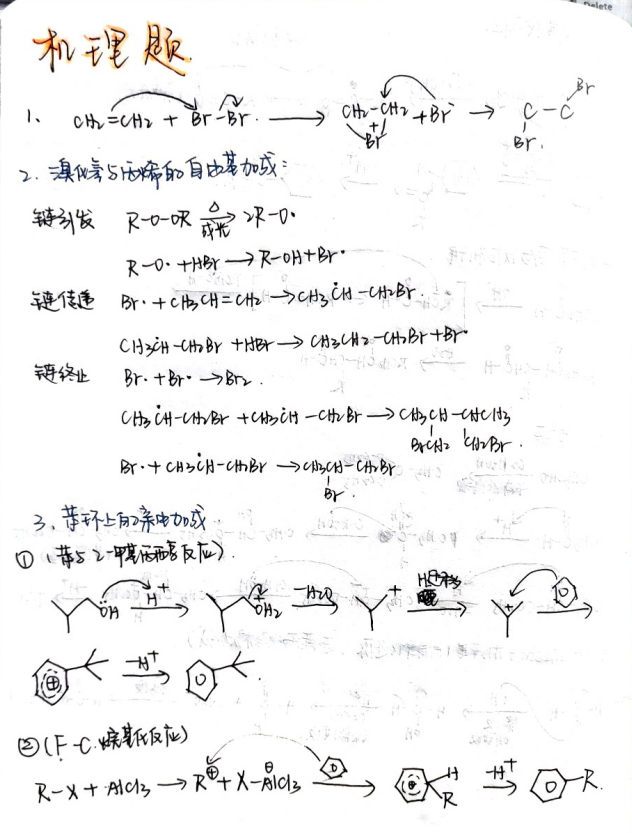 Delete
机理题
1. CH₂=CH₂ + Br-Br. ⟶ CH₂-CH₂ + Br⁻ → C-C
Br⁺ Br Br.
2. 溴化氢与丙烯的自由基加成:
链引发 R-O-OR △ 或光 ⟶ 2R-O·
R-O· + HBr ⟶ R-OH + Br·
链传递 Br· + CH₃CH=CH₂ ⟶ CH₃ĊH-CH₂Br.
CH₃ĊH-CH₂Br + HBr → CH₃CH₂-CH₂Br + Br·
链终止 Br· + Br· ⟶ Br₂.
CH₃ĊH-CH₂Br + CH₃ĊH-CH₂Br ⟶ CH₃CH-CHCH₃
BrCH₂ CH₂Br.
Br· + CH₃ĊH-CH₂Br ⟶ CH₃CH-CH₂Br
Br.
3. 苯环上的亲电加成
① (苯与2-甲基丙醇反应).
ÖH H⁺ ⟶ ⁺OH₂ -H₂O ⟶ + H⁻迁移 ⟶ + ⟶
⊕ -H⁺ ⟶
② (F-C.烷基化反应)
R-X + AlCl₃ ⟶ R⊕ + X-AlCl₃ ⊖ ⟶ ⊕ H R -H⁺ ⟶ -R.